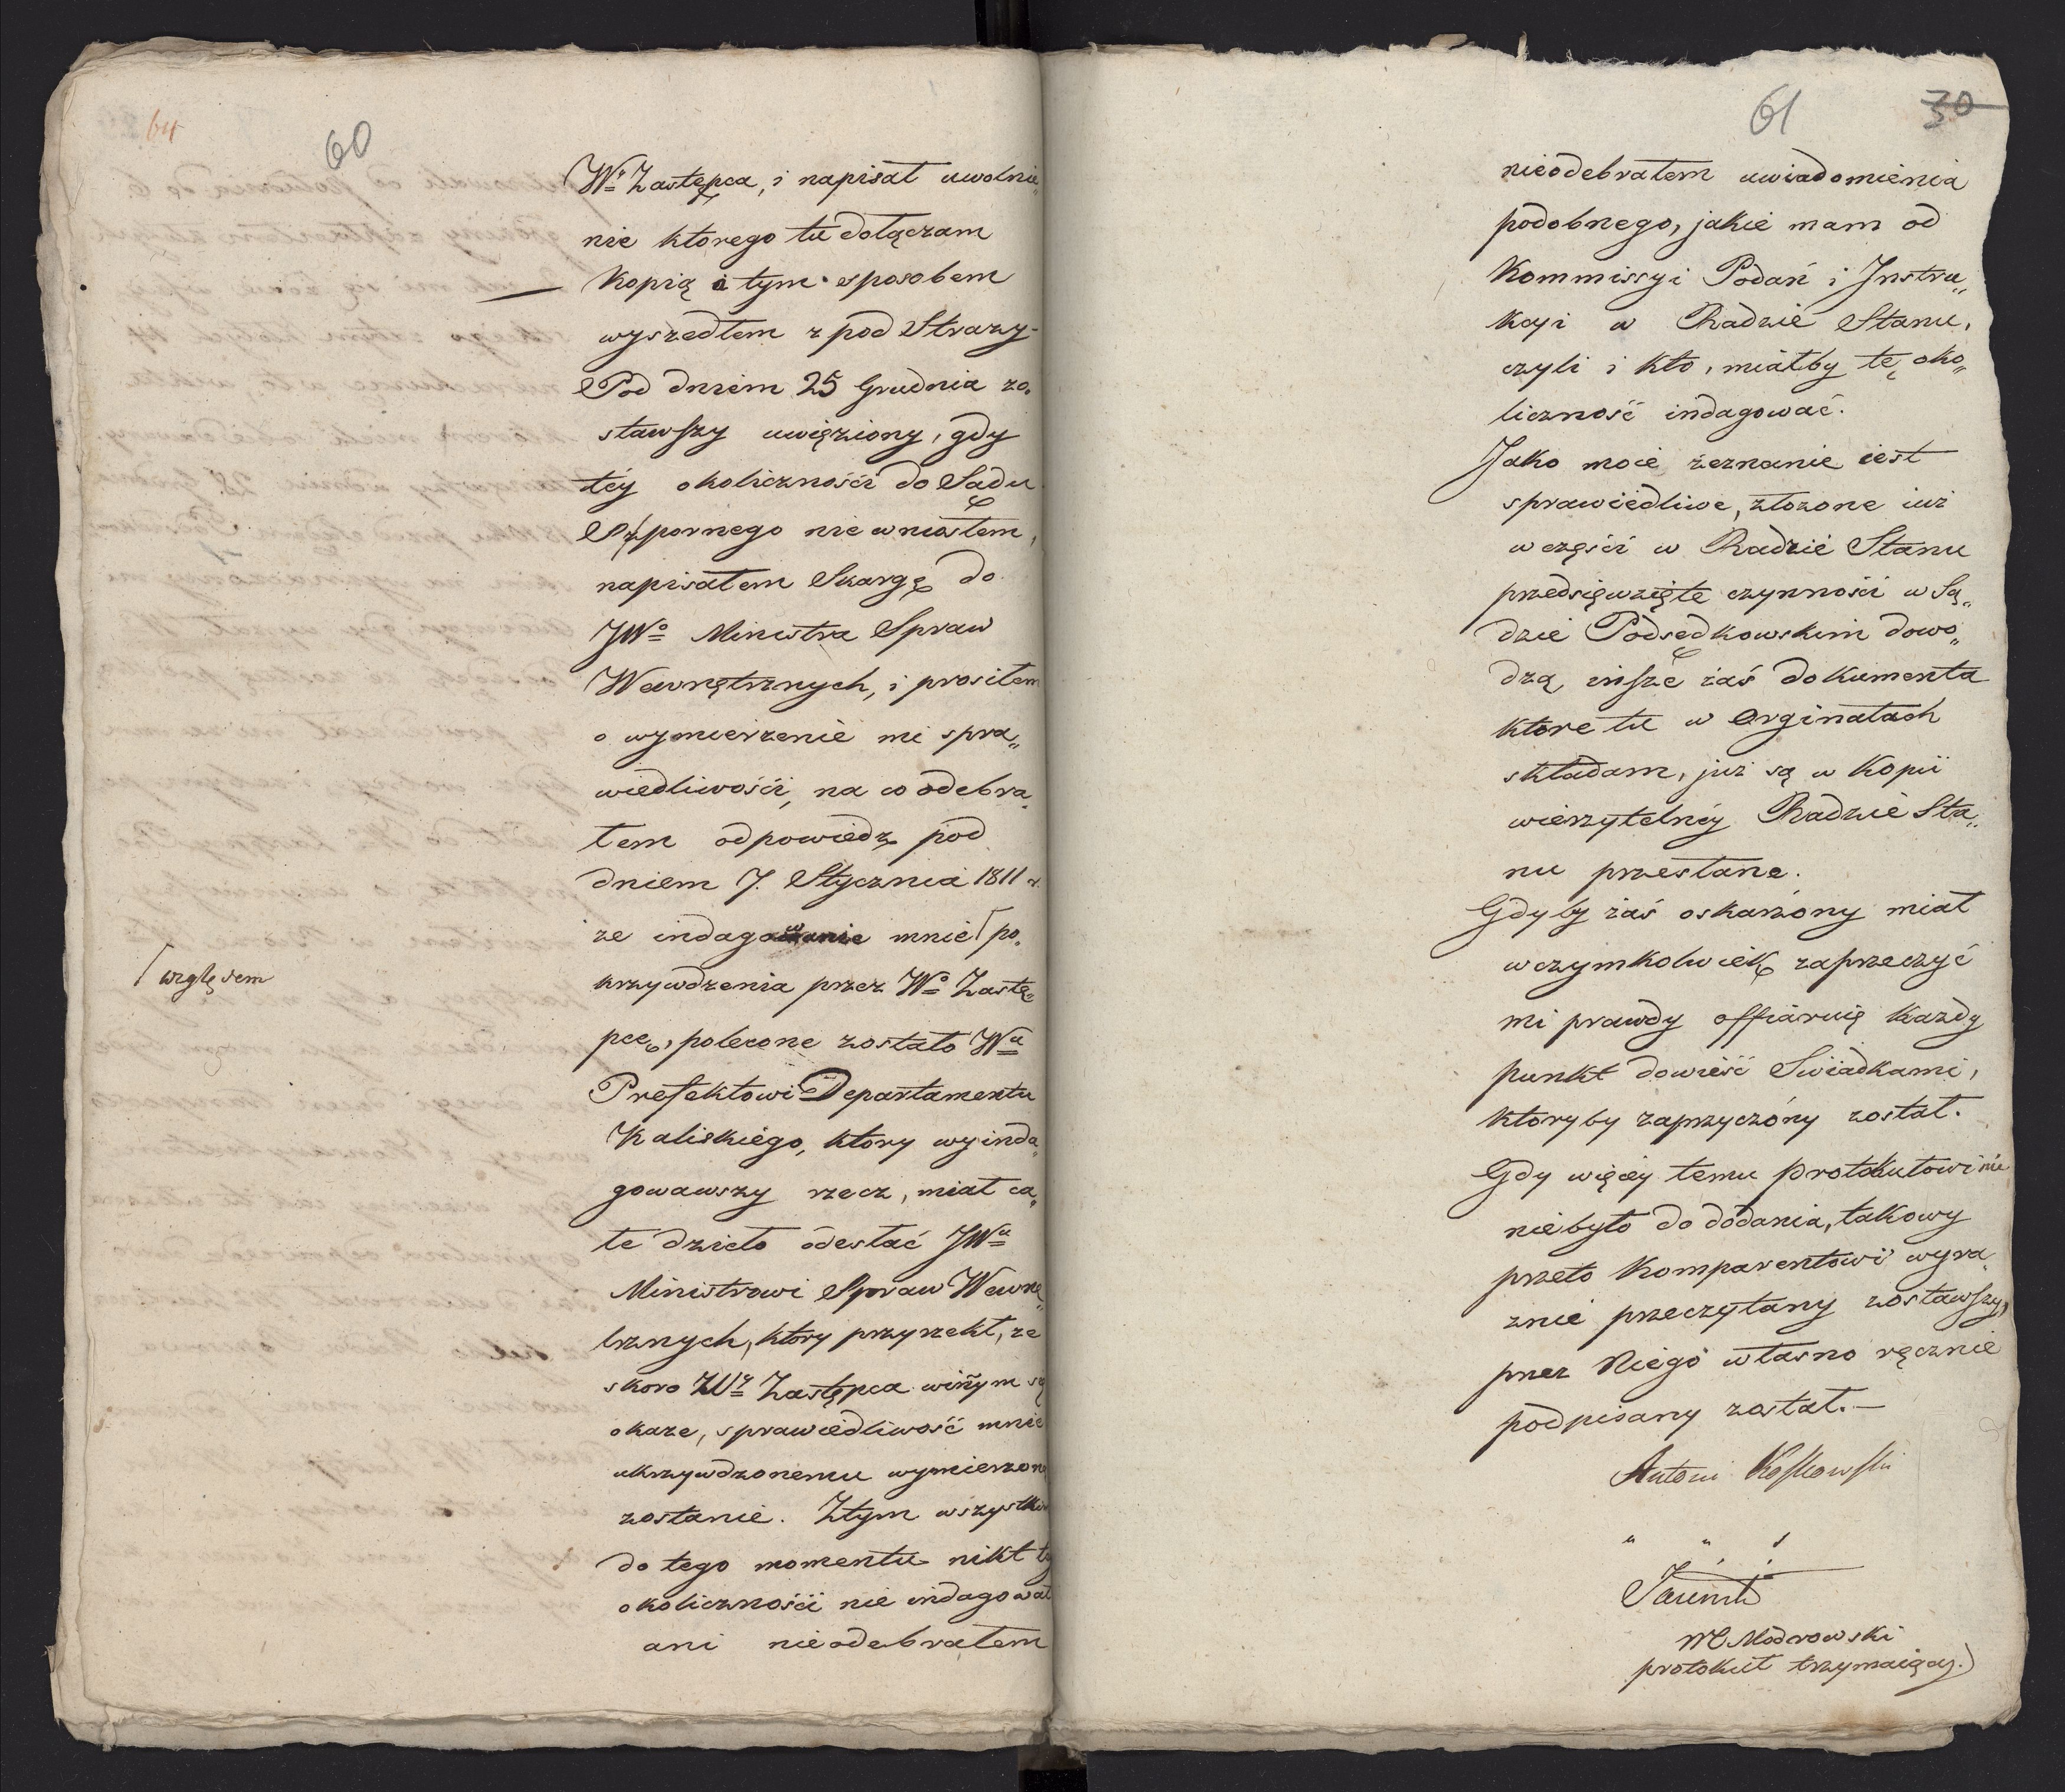 64
60
Wº Zastępca, i napisał uwolnie„
nie ktorego tu dołączam
Kopią i tym sposobem
wyszedłem z pod Strazy
Pod dniem 25 Grudnia zo„
stawszy uwięziony, gdy
téy okoliczności do Sądu
Spornego nie wniosłem,
napisałem Skargę do
JWº Ministra Spraw
Wewnętrznych, i prosiłem
o wymierzenie mi spra„
wiedliwości, na co odebra„
łem odpowiedz pod
dniem 7. Stycznia 1811 r.
ze indagowanie mnie ⌈ po„
⌈ względem
krzywdzenia przez Wº Zastę„
pcę, polecone zostało Wu
Prefektowi Departamentu
Kaliskiego, ktory wyinda„
gowawszy rzecz, miał ca„
łe dzieło odesłać JWu
Ministrowi Spraw Wewnę„
trznych, ktory przyrzekł, ze
skoro Wy Zastępca winnym się
okaze, sprawiedliwość mnie
ukrzywdzonemu wymierzona
zostanie. Ztym wszystkim
do tego momentu nikt téy
okoliczności nie indagował
ani nieodebrałem
61 30
nieodebrałem uwiadomienia
podobnego, jakie mam od
Kommissyi Podań i Instru„
kcyi w Radzie Stanu,
czyli i kto, miałby tę oko„
liczność indagować.
Jako moie zeznanie iest
sprawiedliwe, złozone iuz
w części w Radzie Stanu
przedsięwzięte czynności w Są„
dzie Podsędkowskim dowo„
dzą, insze zaś dokumenta
ktore tu w Orginałach
składam, już są w Kopii
wierzytelnéy Radzie Sta„
nu przesłane.
Gdyby zaś oskarzony miał
w czymkolwiek zaprzeczyć
mi prawdy offiaruię kazdy
punkt dowieść Swiadkami,
ktoryby zaprzyczóny został.
Gdy więcéy temu protokułowi nic
niebyło do dodania, takowy
przeto Komparentowi wyra„
znie przeczytany zostawszy,
przez Niego własno ręcznie
podpisany został.—
Antoni Koſkowſki
" " s
W Modrowski
protokuł trzymaiący.)